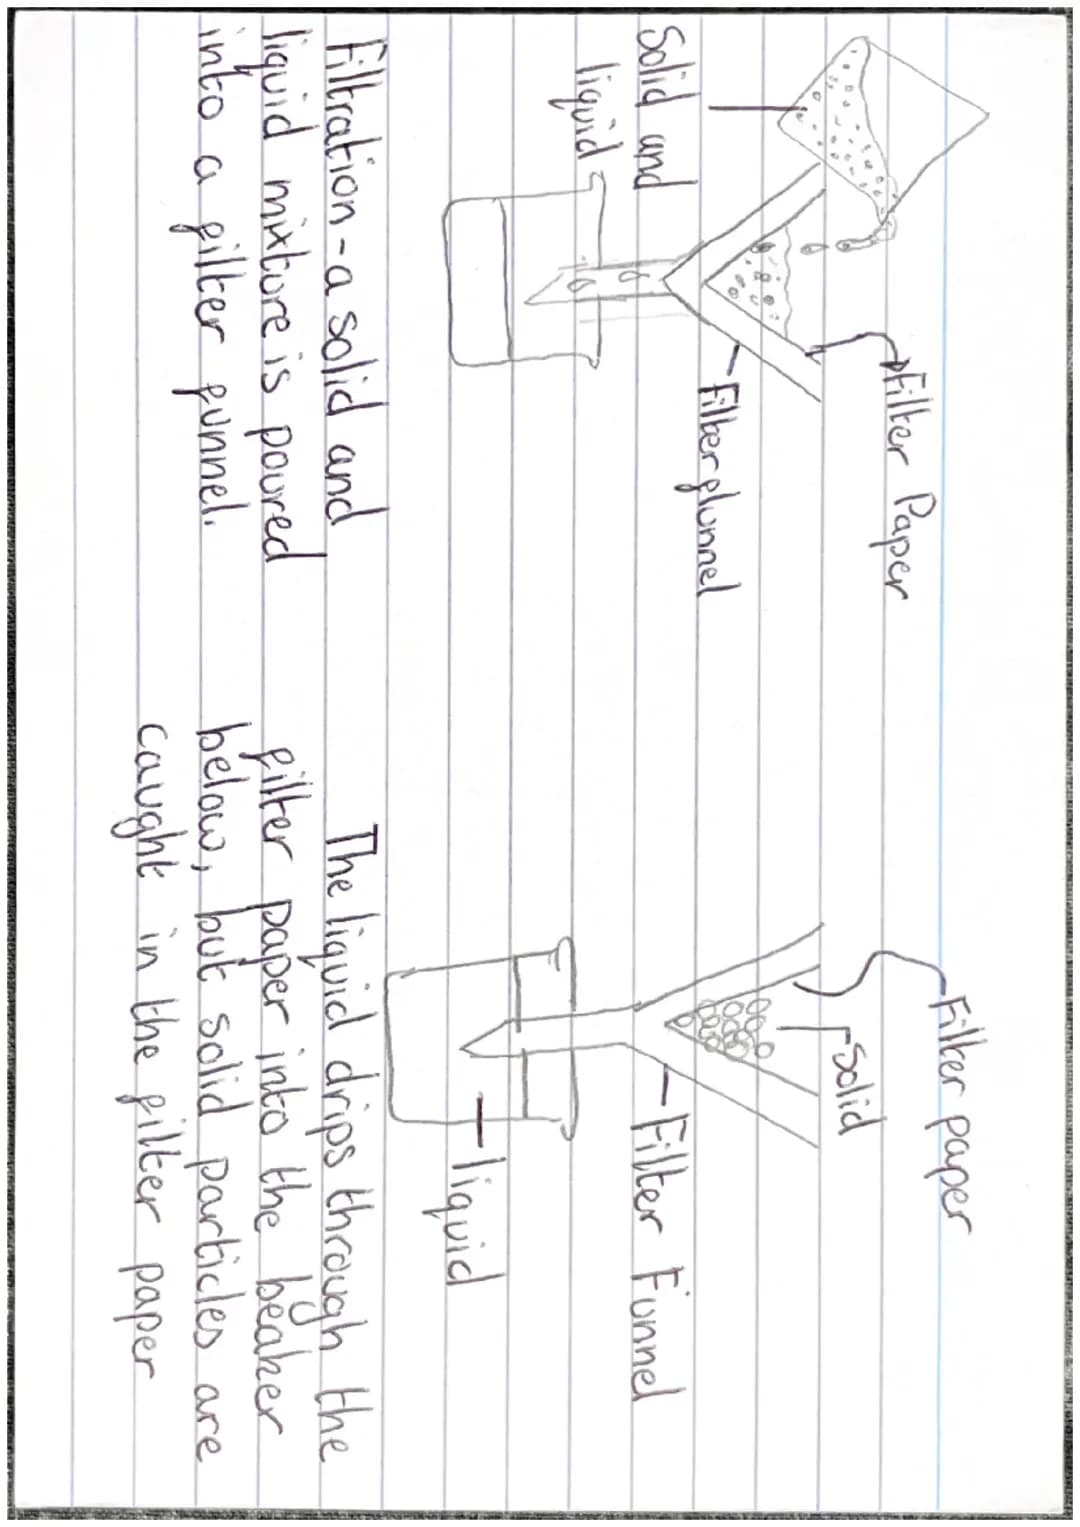 Filter Paper
Solid and
liquid
Filter flunnel
Filtration - a solid and
liquid mixture is poured
into a filter funnel.
Filter paper
Solid
Filter Funnel
liquid
The liquid drips through the
filter paper into the beaker
below, but solid particles are
caught in the filter paper